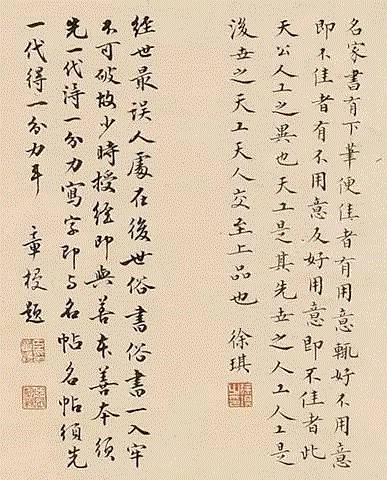 名家書有下筆便佳者有用意輒好不用意
即不佳者有不用意反好用意即不佳者此
天公人工之異也天工是其先世之人工人工是
後世之天工天人交至上品也 徐琪
經世最誤人處在後世俗書俗書一入牢
不可破故少時授經即與善本善本須
先一代得一分力寫字即与名帖名帖須先
一代得一分力耳 章授題